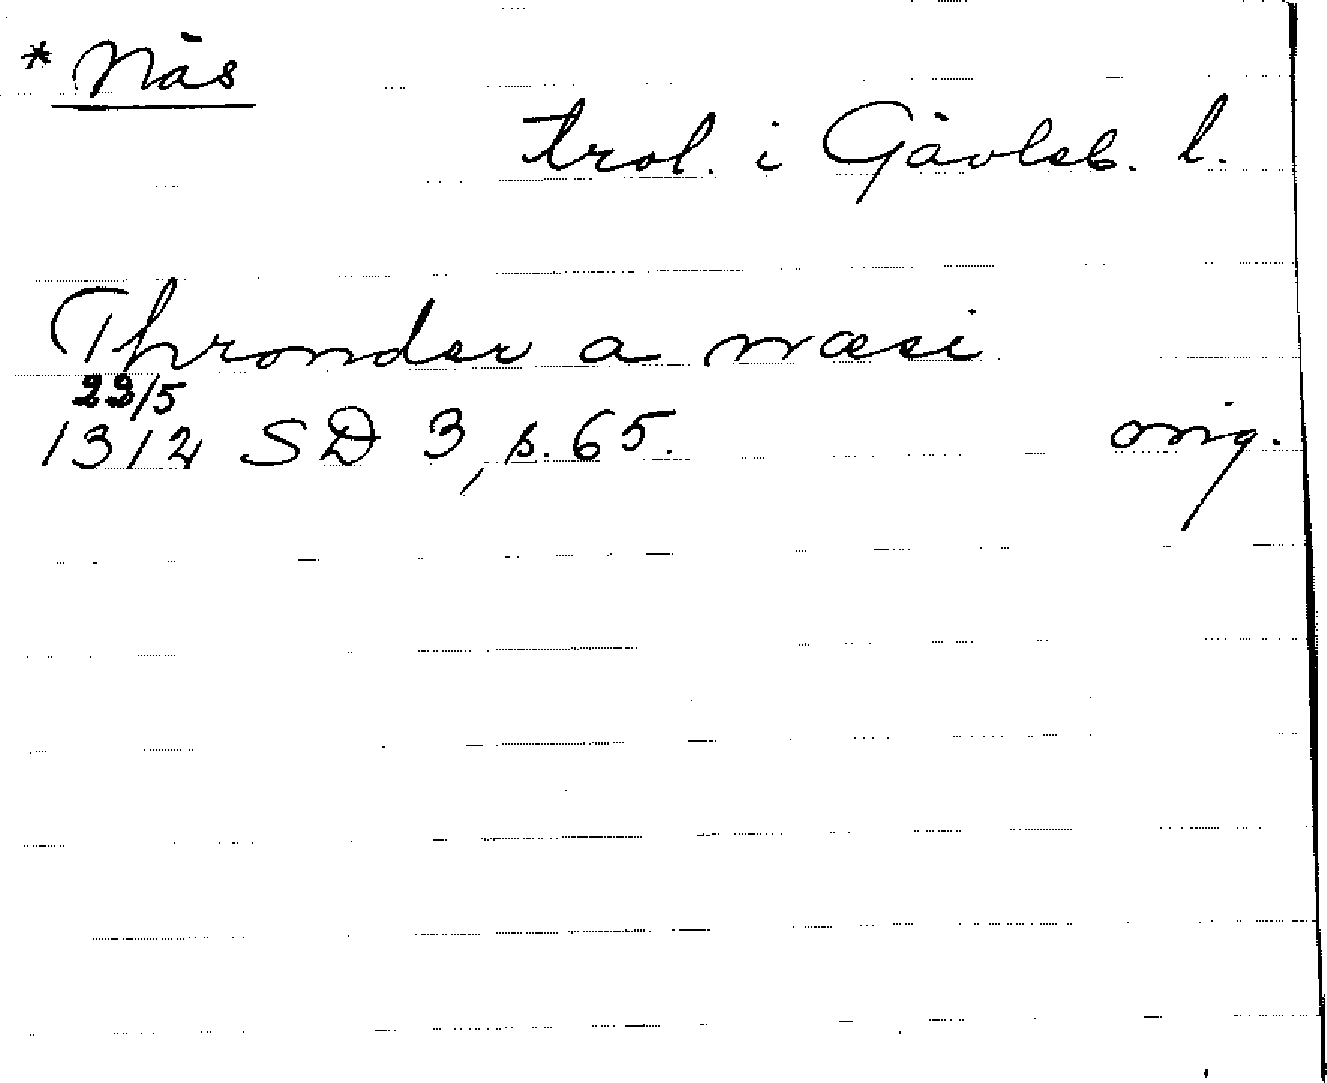 * Näs
trol. i Gävleb. l.
Thronder a næsi
22/5
1312 SD 3, s. 65. orig.